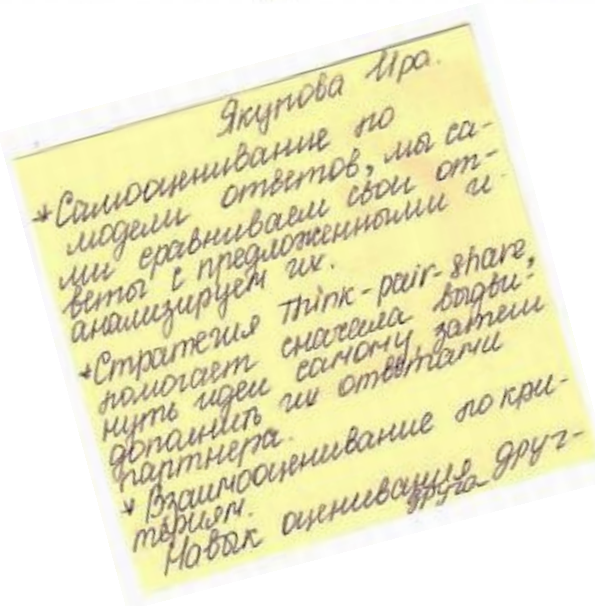 Якупова Ира.
*Самооценивание по
модели ответов, мы са-
ми сравниваем свои от-
веты с предложенными и
анализируем их.
*Стратегия Think-pair-share,
помогает сначала выдви-
нуть идеи самому затем
дополнить их ответами
партнера.
* Взаимооценивание по кри-
териям.
Навык оценивания друг-
друга